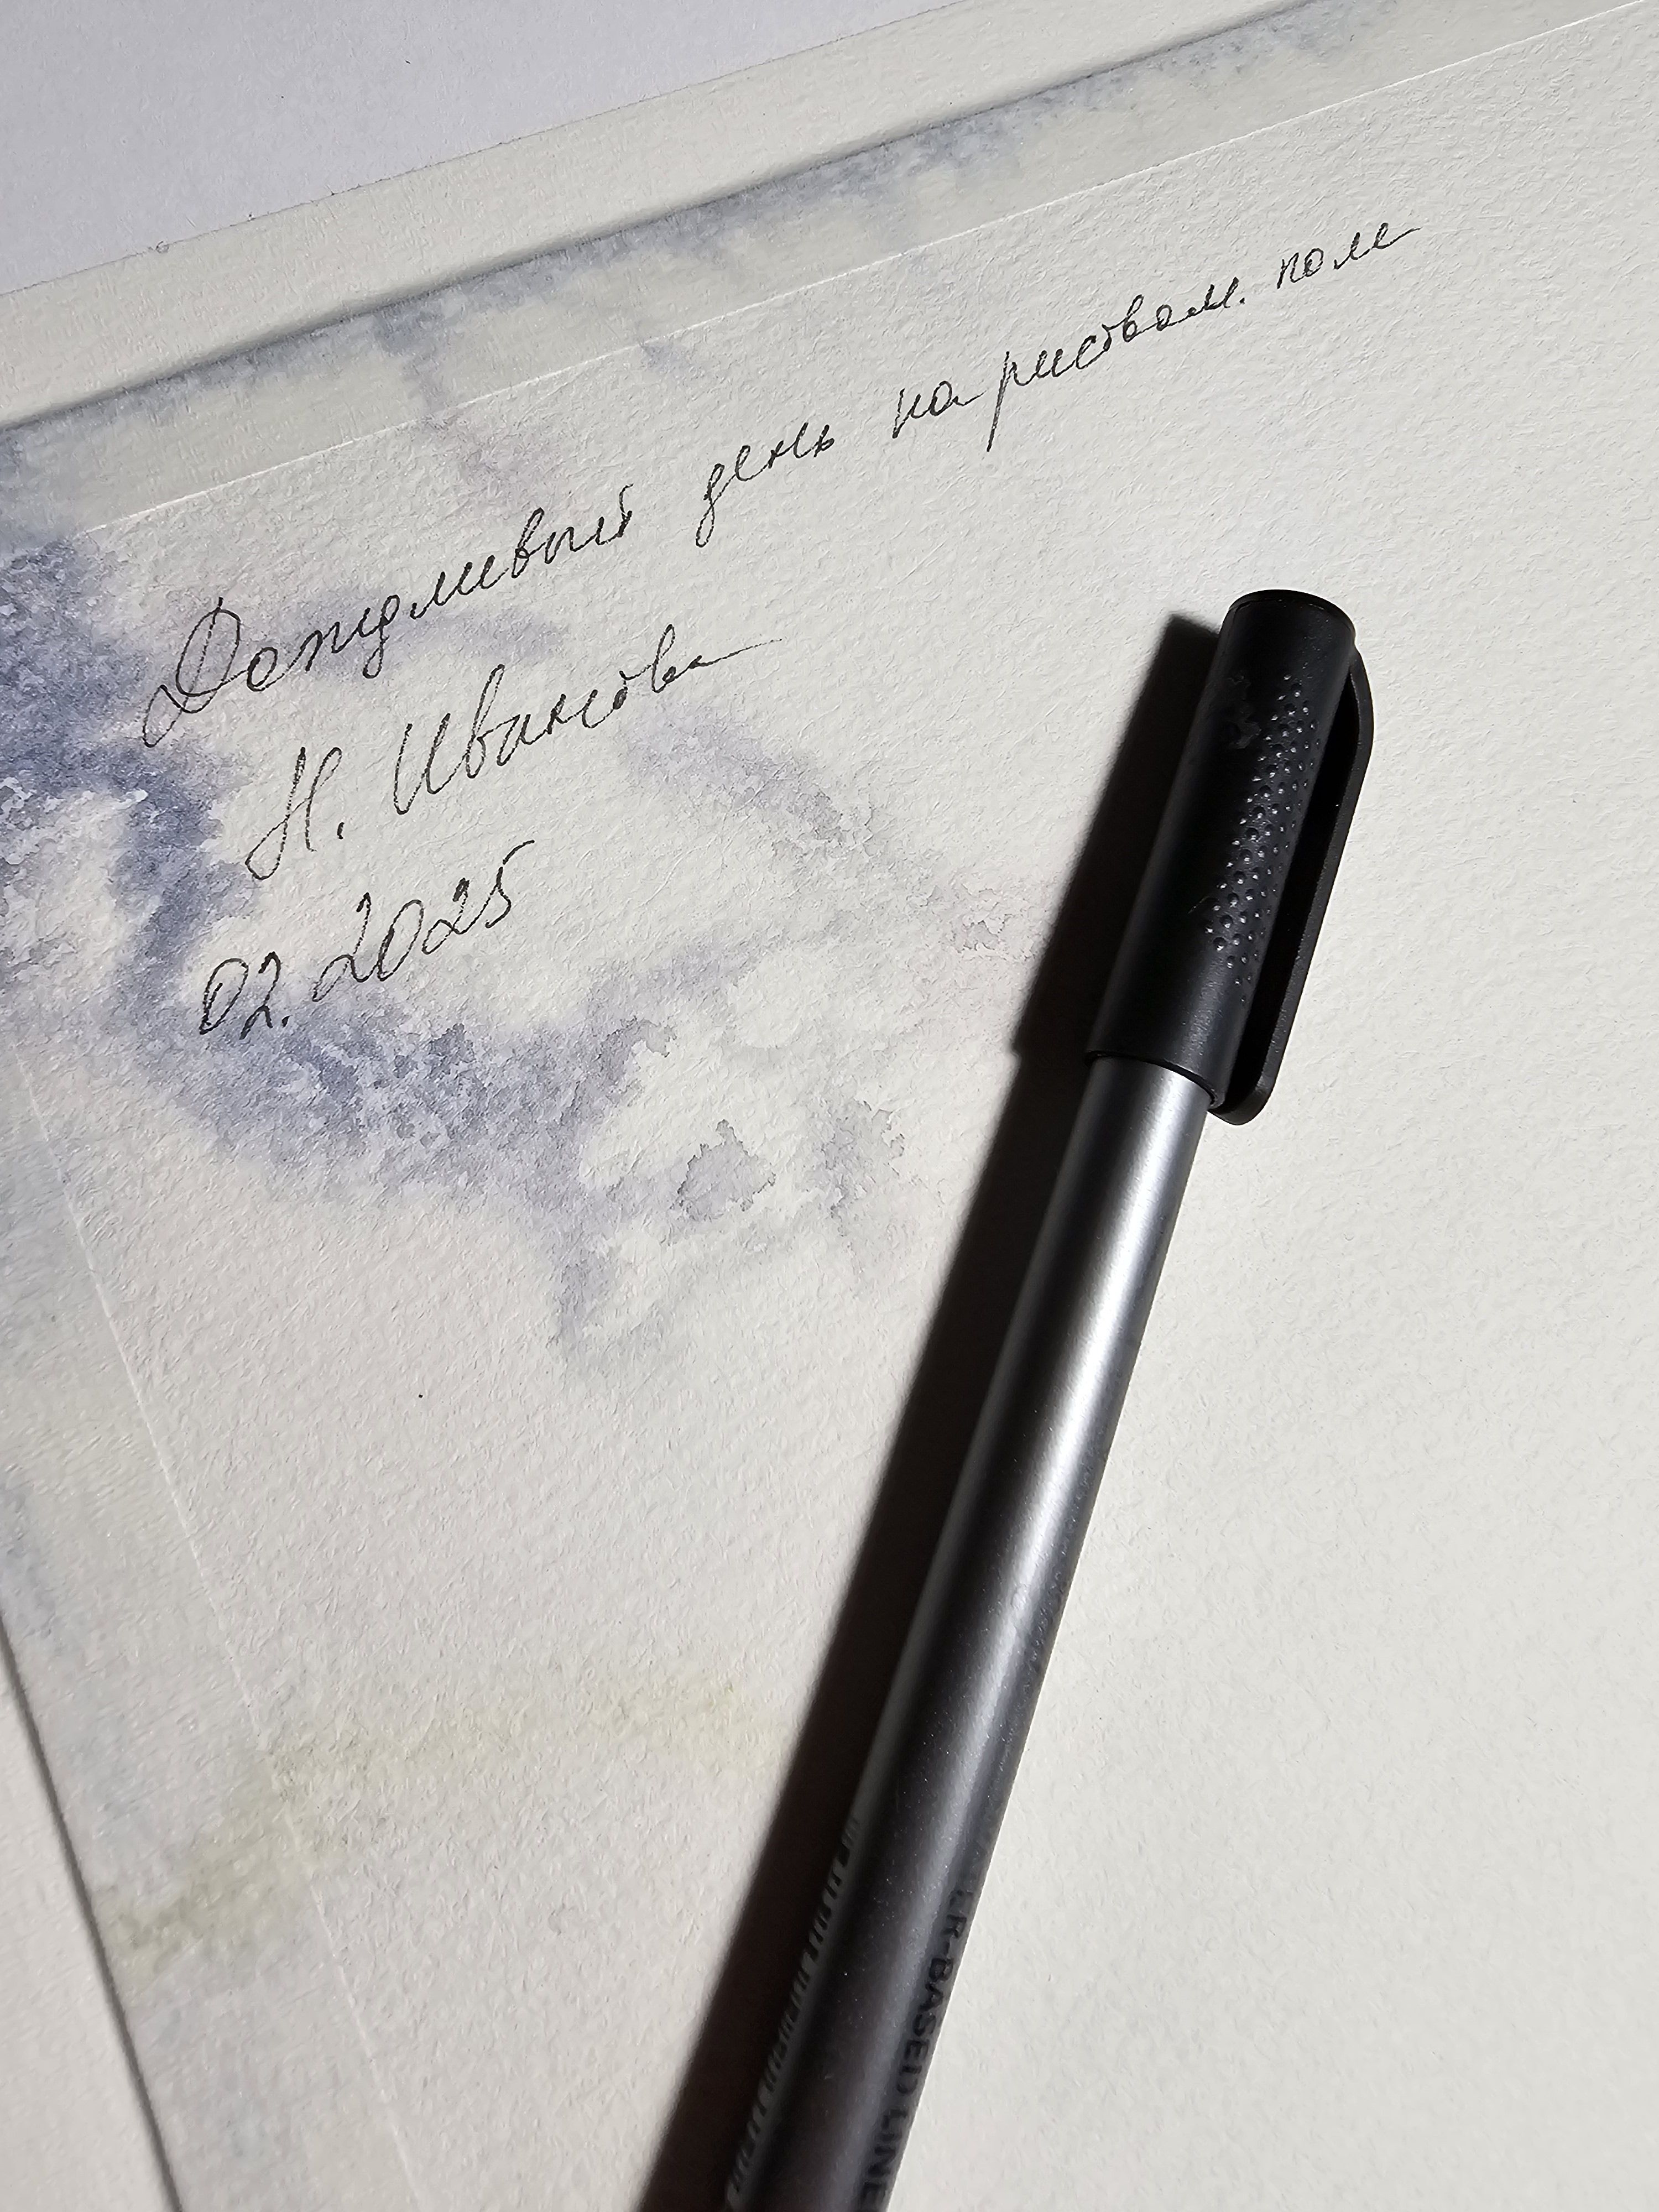 Дождливый день на рисовом поле
Н. Иванова
02.2025
BASED LINE